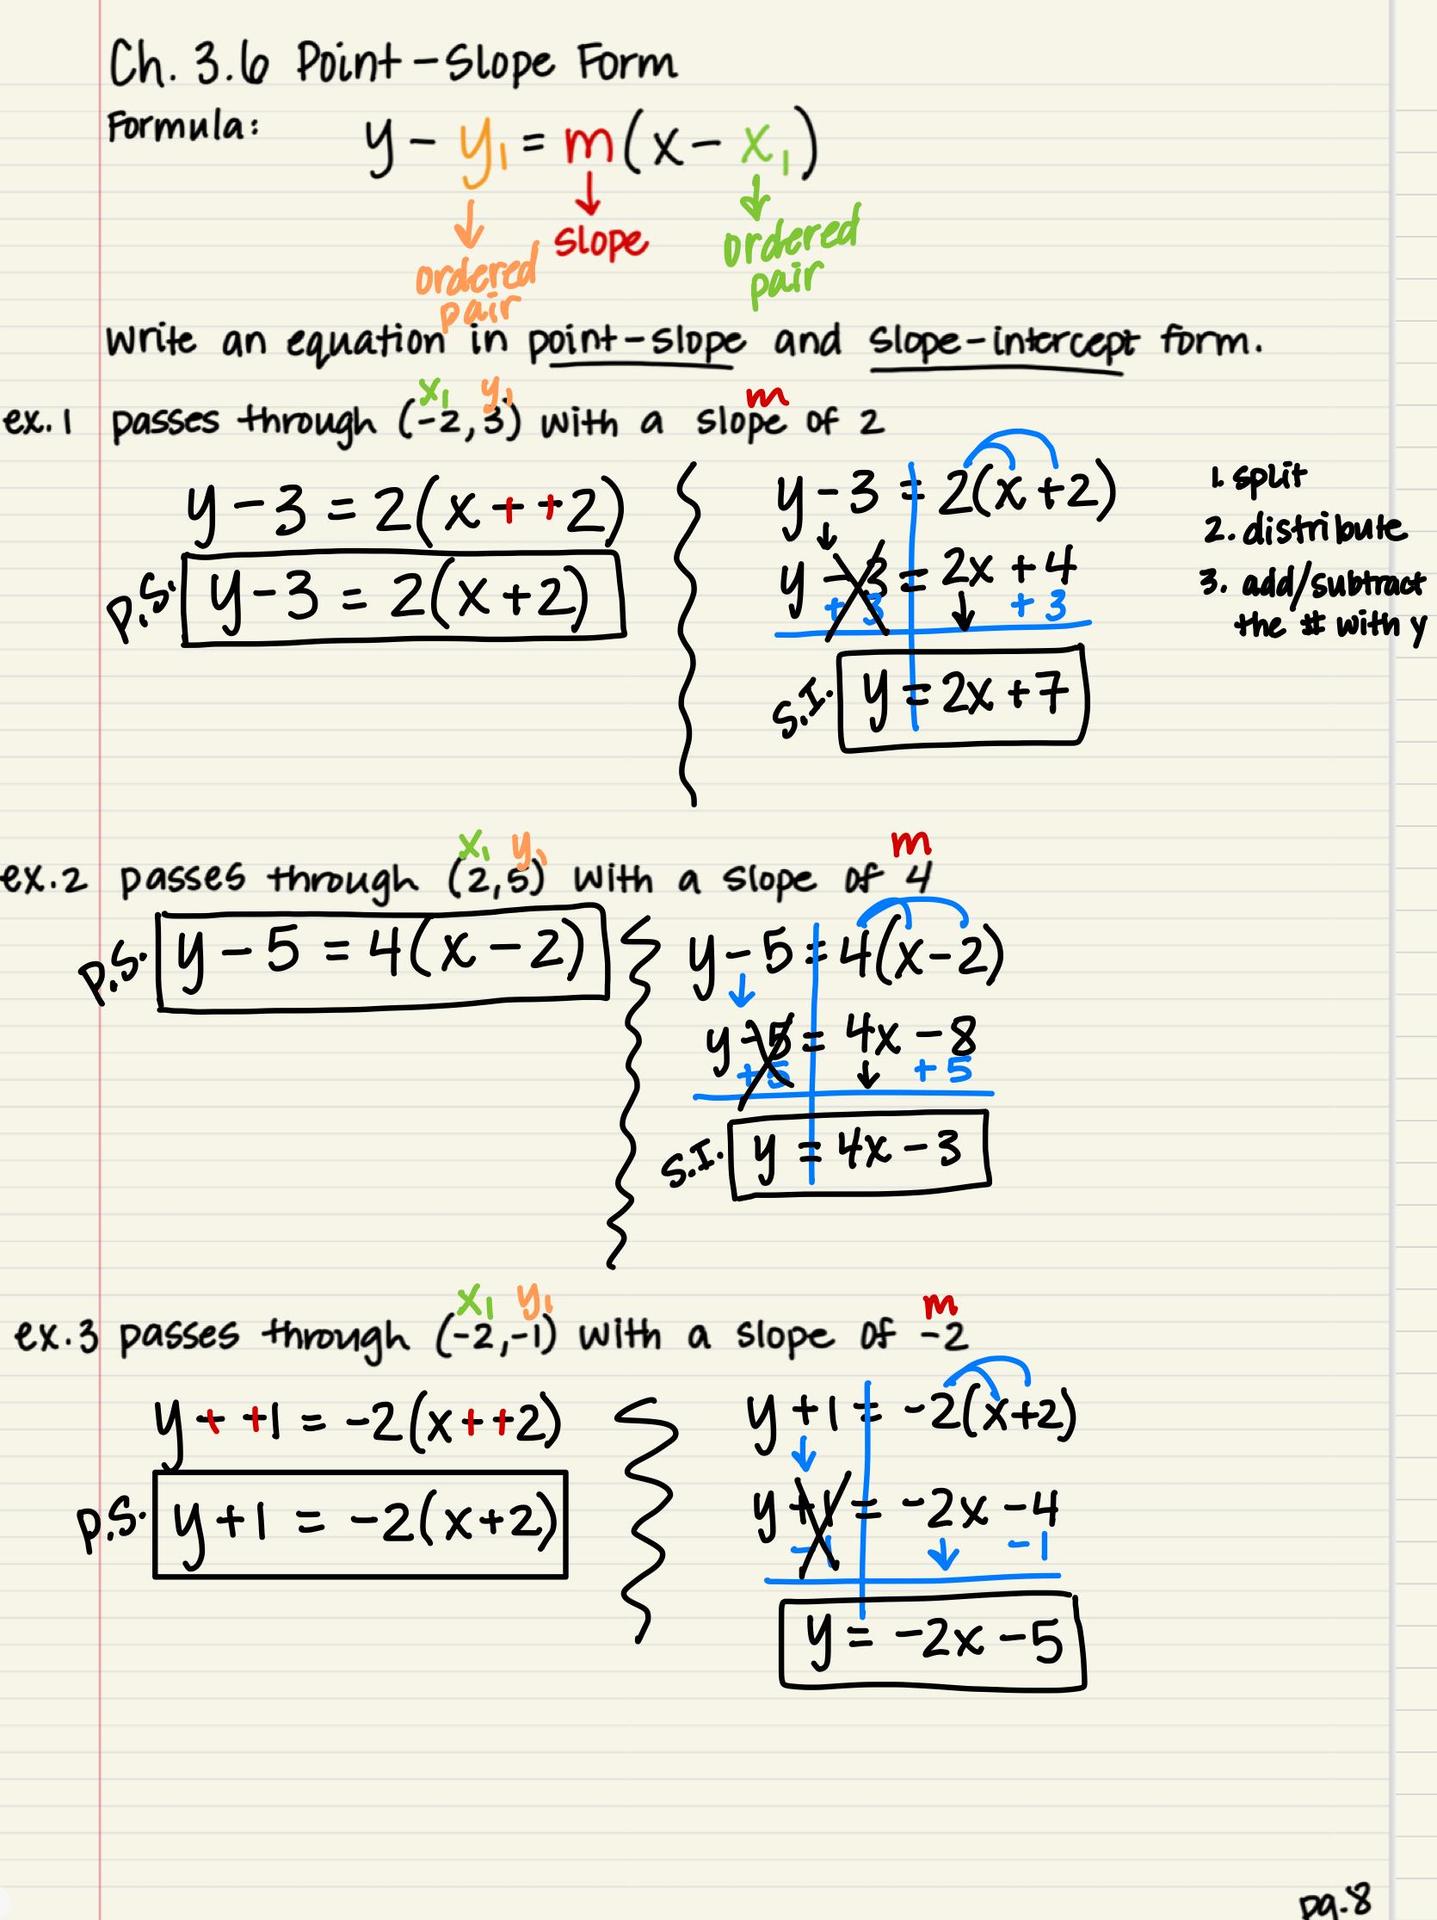 Ch. 3.6 Point-Slope Form
Formula: y - y₁ = m(x - x₁)
slope
ordered pair
ordered pair
Write an equation in point-slope and slope-intercept form.
x₁ y₁ m
ex. 1 passes through (-2, 3) with a slope of 2
y - 3 = 2(x + +2)
P.S. y - 3 = 2(x + 2)
y - 3 = 2(x + 2)
y - 3 = 2x + 4
+ 3 + 3
S.I. y = 2x + 7
1. split
2. distribute
3. add/subtract
the # with y
x₁ y₁ m
ex. 2 passes through (2, 5) with a slope of 4
P.S. y - 5 = 4(x - 2)
y - 5 = 4(x - 2)
y - 5 = 4x - 8
+ 5 + 5
S.I. y = 4x - 3
x₁ y₁ m
ex. 3 passes through (-2, -1) with a slope of -2
y + +1 = -2(x + +2)
P.S. y + 1 = -2(x + 2)
y + 1 = -2(x + 2)
y + 1 = -2x - 4
- 1 - 1
y = -2x - 5
pg. 8